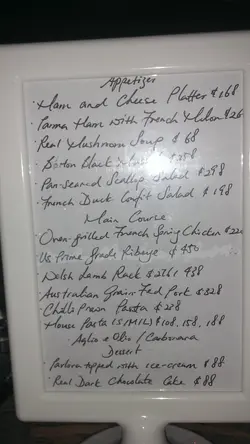 Appetizer
· Ham and Cheese Platter $168
· Parma Ham with French Melon $26
· Real Mushroom Soup $68
· Boston Black $258
· Pan-seared Scallop Salad $298
· French Duck Confit Salad $198
Main Course
· Oven-grilled French Spring Chicken $22
· US Prime Grade Ribeye $450
· Welsh Lamb Rack 938
· Australian Grain Fed Pork $328
· Chilli Prawn Pasta $228
· House Pasta (S/M/L) $108, 158, 188
· Aglio e Olio / Carbonara
Dessert
· topped with ice-cream $88
· Real Dark Chocolate Cake $88